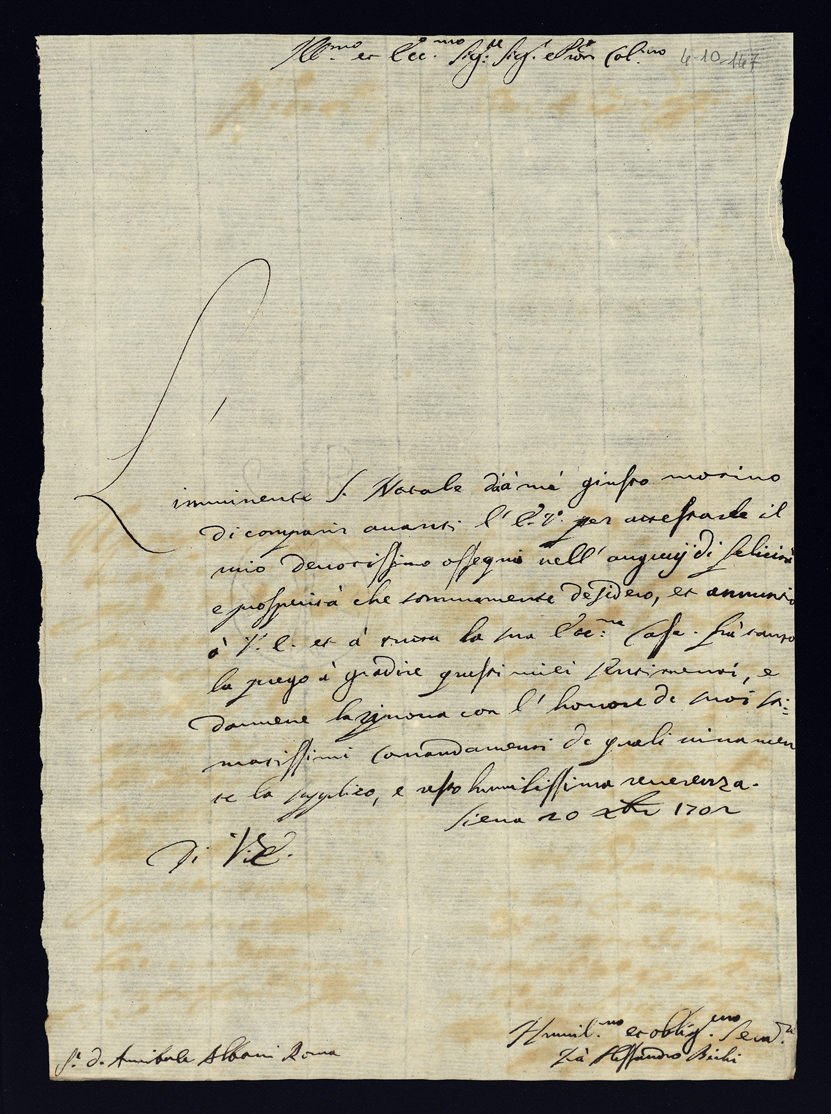 Ill.mo et Ecc.mo Sig.re Sig.r e Pron Col.mo 4-10-147
L'imminente S. Natale dà à me giusto motivo
di comparir avanti l' E. V. per attestarle il
mio devotissimo ossequio nell' augurij di felicità
e prosperità che sommamente desidero, et annuntio
à V. E. et à tutta la sua Ecc.ma Casa. frà tanto
la prego à gradire questi miei sentimenti, e
darmene la riprova con l' honore de suoi sti=
matissimi comandamenti de quali vivamen
te la supplico, e resto humilissima reverenza.
Siena 20 Xbre 1702
Di V. E.
Humil.mo et oblig.mo Serv.re
frà Alessandro Bichi
S.r d. Annibale Albani Roma